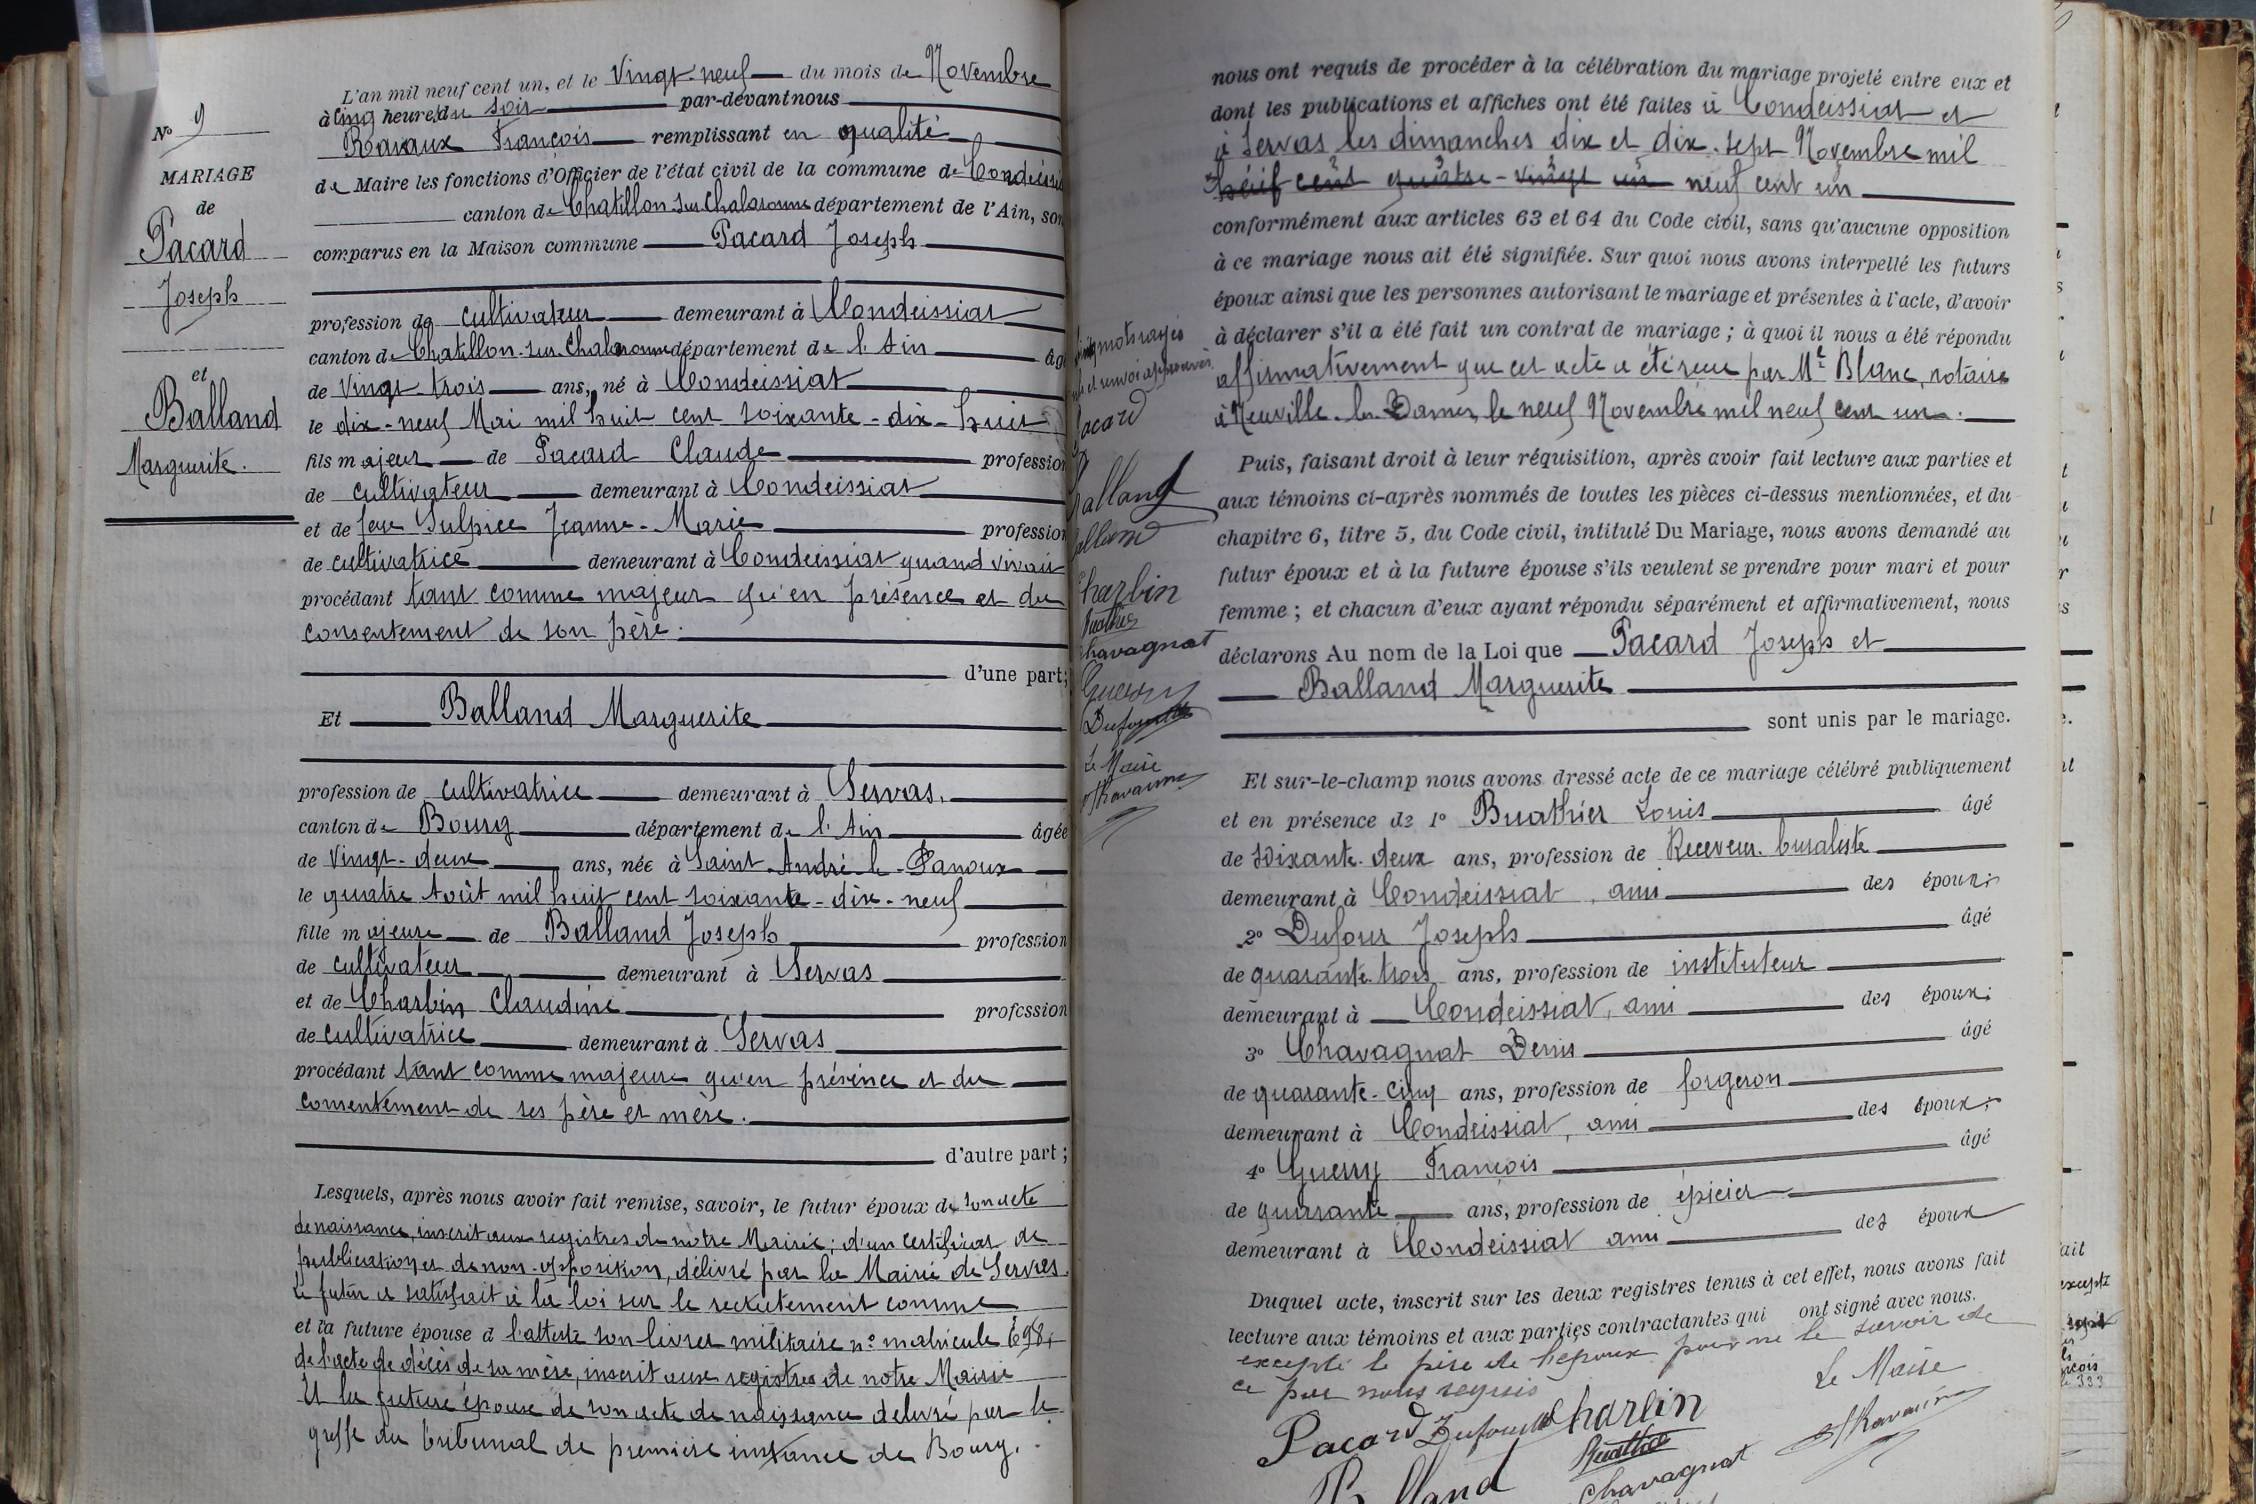 N° 9
MARIAGE
de
Pacard
Joseph
et
Balland
Marguerite.
L'an mil neuf cent un, et le Vingt-neuf du mois de Novembre
à cinq heures du soir par-devant nous
Ravaux François remplissant en qualité
de Maire les fonctions d'Officier de l'état civil de la commune de Condeissiat
canton de Chatillon-sur-Chalaronne département de l'Ain, son
comparus en la Maison commune Pacard Joseph
profession de cultivateur demeurant à Condeissiat
canton de Chatillon-sur-Chalaronne département de l'Ain âgé
de vingt-trois ans, né à Condeissiat
le dix-neuf Mai mil huit cent soixante-dix-huit
fils majeur de Pacard Claude profession
de cultivateur demeurant à Condeissiat
et de feue Sulpice Jeanne-Marie profession
de cultivatrice demeurant à Condeissiat quand vivait
procédant tant comme majeur qu'en présence et du
consentement de son père.
d'une part;
Et Balland Marguerite
profession de cultivatrice demeurant à Servas.
canton de Bourg département de l'Ain âgée
de vingt-deux ans, née à Saint-André-le-Panoux
le quatre Août mil huit cent soixante-dix-neuf
fille majeure de Balland Joseph profession
de cultivateur demeurant à Servas
et de Charbin Claudine profession
de cultivatrice demeurant à Servas
procédant tant comme majeure qu'en présence et du
consentement de ses père et mère.
d'autre part;
Lesquels, après nous avoir fait remise, savoir, le futur époux de son acte
de naissance, inscrit aux registres de notre Mairie; d'un certificat de
publication et de non-opposition, délivré par la Mairie de Servas
Le futur a satisfait à la loi sur le recrutement comme
et la future épouse d l'atteste son livret militaire n° matricule 698,
de l'acte de décès de sa mère, inscrit aux registres de notre Mairie
Et la future épouse de son acte de naissance délivré par le
greffe du tribunal de première instance de Bourg.
mots rayés
et renvoi approuvés
Pacard
Balland
Balland
Charbin
Buathier
Chavagnat
Guerry
Dufour
Le Maire
nous ont requis de procéder à la célébration du mariage projeté entre eux et
dont les publications et affiches ont été faites à Condeissiat et
à Servas les dimanches dix et dix-sept Novembre mil
huit cent quatre-vingt un neuf cent un
conformément aux articles 63 et 64 du Code civil, sans qu'aucune opposition
à ce mariage nous ait été signifiée. Sur quoi nous avons interpellé les futurs
époux ainsi que les personnes autorisant le mariage et présentes à l'acte, d'avoir
à déclarer s'il a été fait un contrat de mariage; à quoi il nous a été répondu
affirmativement que cet acte a été reçu par Me Blanc, notaire
à Neuville-les-Dames, le neuf Novembre mil neuf cent un.
Puis, faisant droit à leur réquisition, après avoir fait lecture aux parties et
aux témoins ci-après nommés de toutes les pièces ci-dessus mentionnées, et du
chapitre 6, titre 5, du Code civil, intitulé Du Mariage, nous avons demandé au
futur époux et à la future épouse s'ils veulent se prendre pour mari et pour
femme; et chacun d'eux ayant répondu séparément et affirmativement, nous
déclarons Au nom de la Loi que Pacard Joseph et
Balland Marguerite
sont unis par le mariage.
Et sur-le-champ nous avons dressé acte de ce mariage célébré publiquement
et en présence de 1° Buathier Louis âgé
de soixante-deux ans, profession de Receveur-buraliste
demeurant à Condeissiat, ami des époux;
2° Dufour Joseph âgé
de quarante-trois ans, profession de instituteur
demeurant à Condeissiat, ami des époux;
3° Chavagnat Denis âgé
de quarante-cinq ans, profession de forgeron
demeurant à Condeissiat, ami des époux;
4° Guerry François âgé
de quarante ans, profession de épicier
demeurant à Condeissiat ami des époux
Duquel acte, inscrit sur les deux registres tenus à cet effet, nous avons fait
lecture aux témoins et aux parties contractantes qui ont signé avec nous.
excepté le père de l'époux pour ne le savoir de
ce par nous requis
Le Maire
Pacard Dufour Charbin
Buathier
Balland Chavagnat